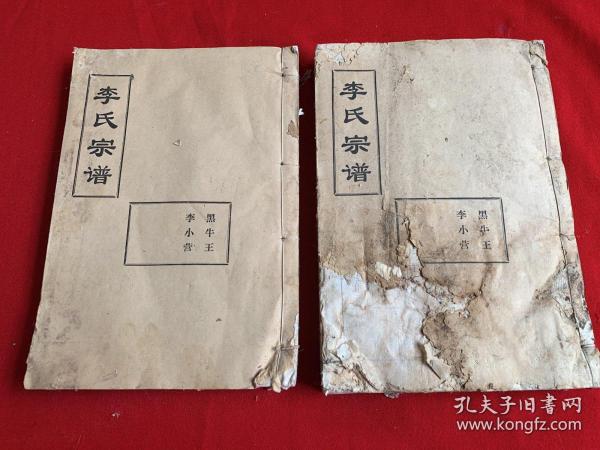 李氏宗谱
黑牛王
李小营
李氏宗谱
黑牛王
李小营
孔夫子旧书网
www.kongfz.com